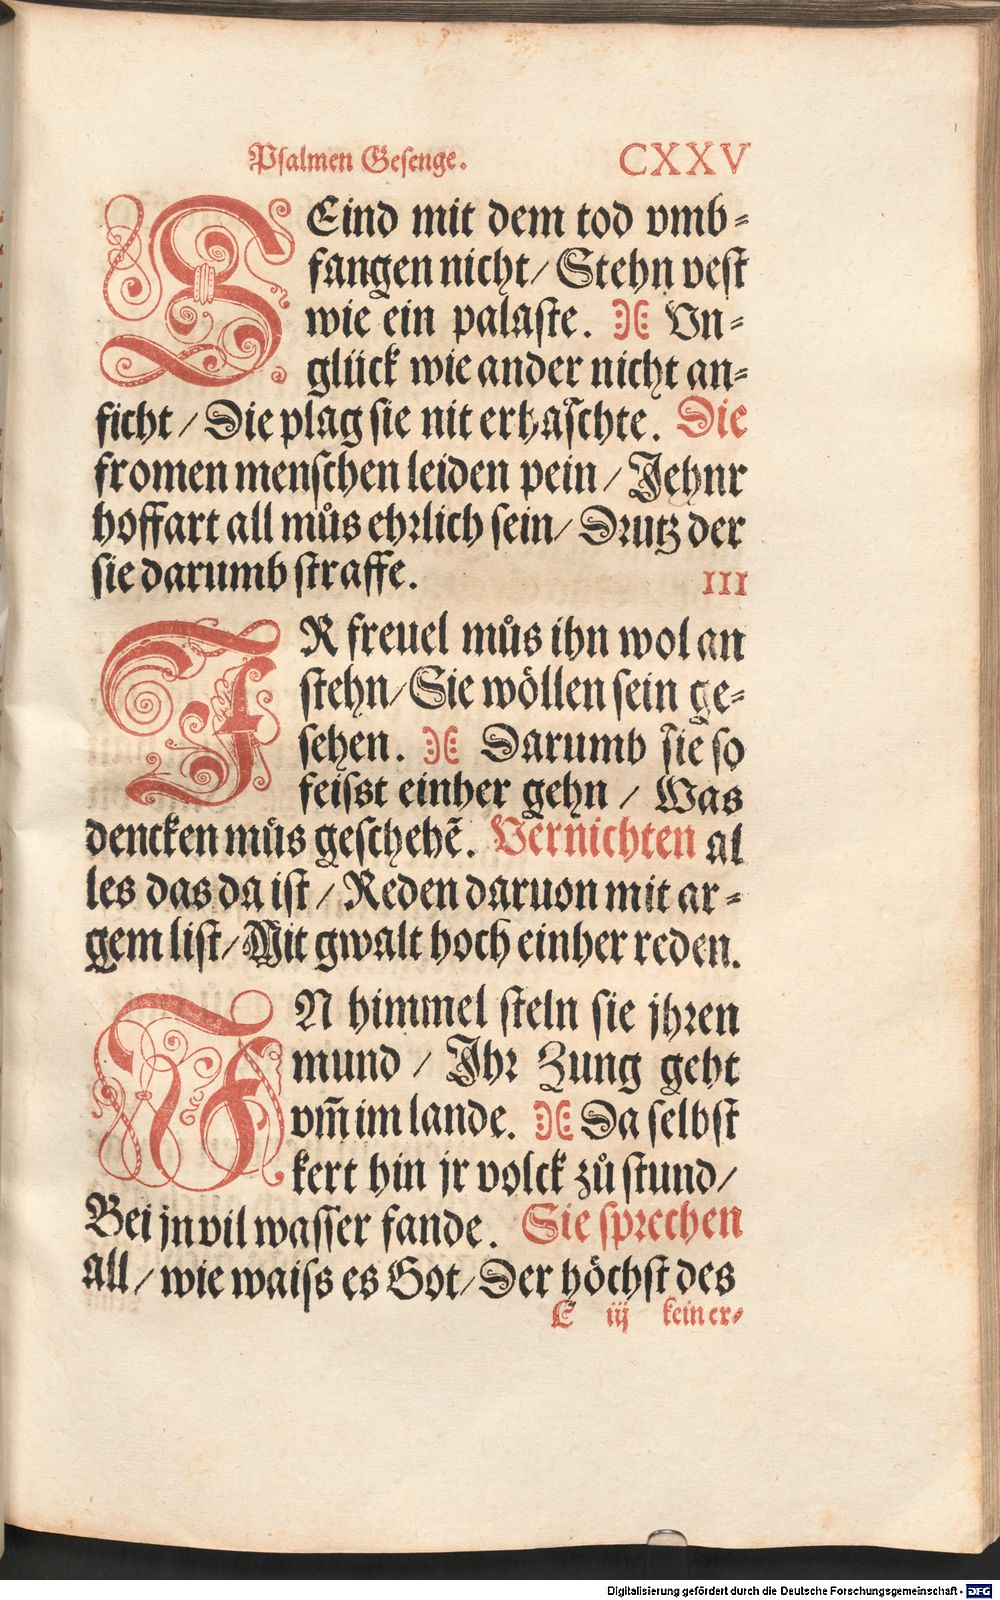 Psalmen Gesenge. CXXV
SEind mit dem tod vmb⸗
fangen nicht/ Stehn vest
wie ein palaste. Vn⸗
glück wie ander nicht an⸗
ficht / Die plag sie nit erhaschte. Die
fromen menschen leiden pein / Jehnr
hoffart all můs ehrlich sein/ Drutz der
sie darumb straffe. III
IR freuel můs ihn wol an
stehn/ Sie wöllen sein ge⸗
sehen. Darumb sie so
feisst einher gehn / Was
dencken můs geschehẽ. Vernichten al
les das da ist / Reden daruon mit ar⸗
gem list/ Mit gwalt hoch einher reden.
IN himmel steln sie jhren
mund / Jhr Zung geht
vm̃ im lande. Da selbst
kert hin jr volck zů stund/
Bei jn vil wasser fande. Sie sprechen
all/ wie waiss es Got/ Der höchst des
E iij keiner⸗
Digitalisierung gefördert durch die Deutsche Forschungsgemeinschaft - DFG